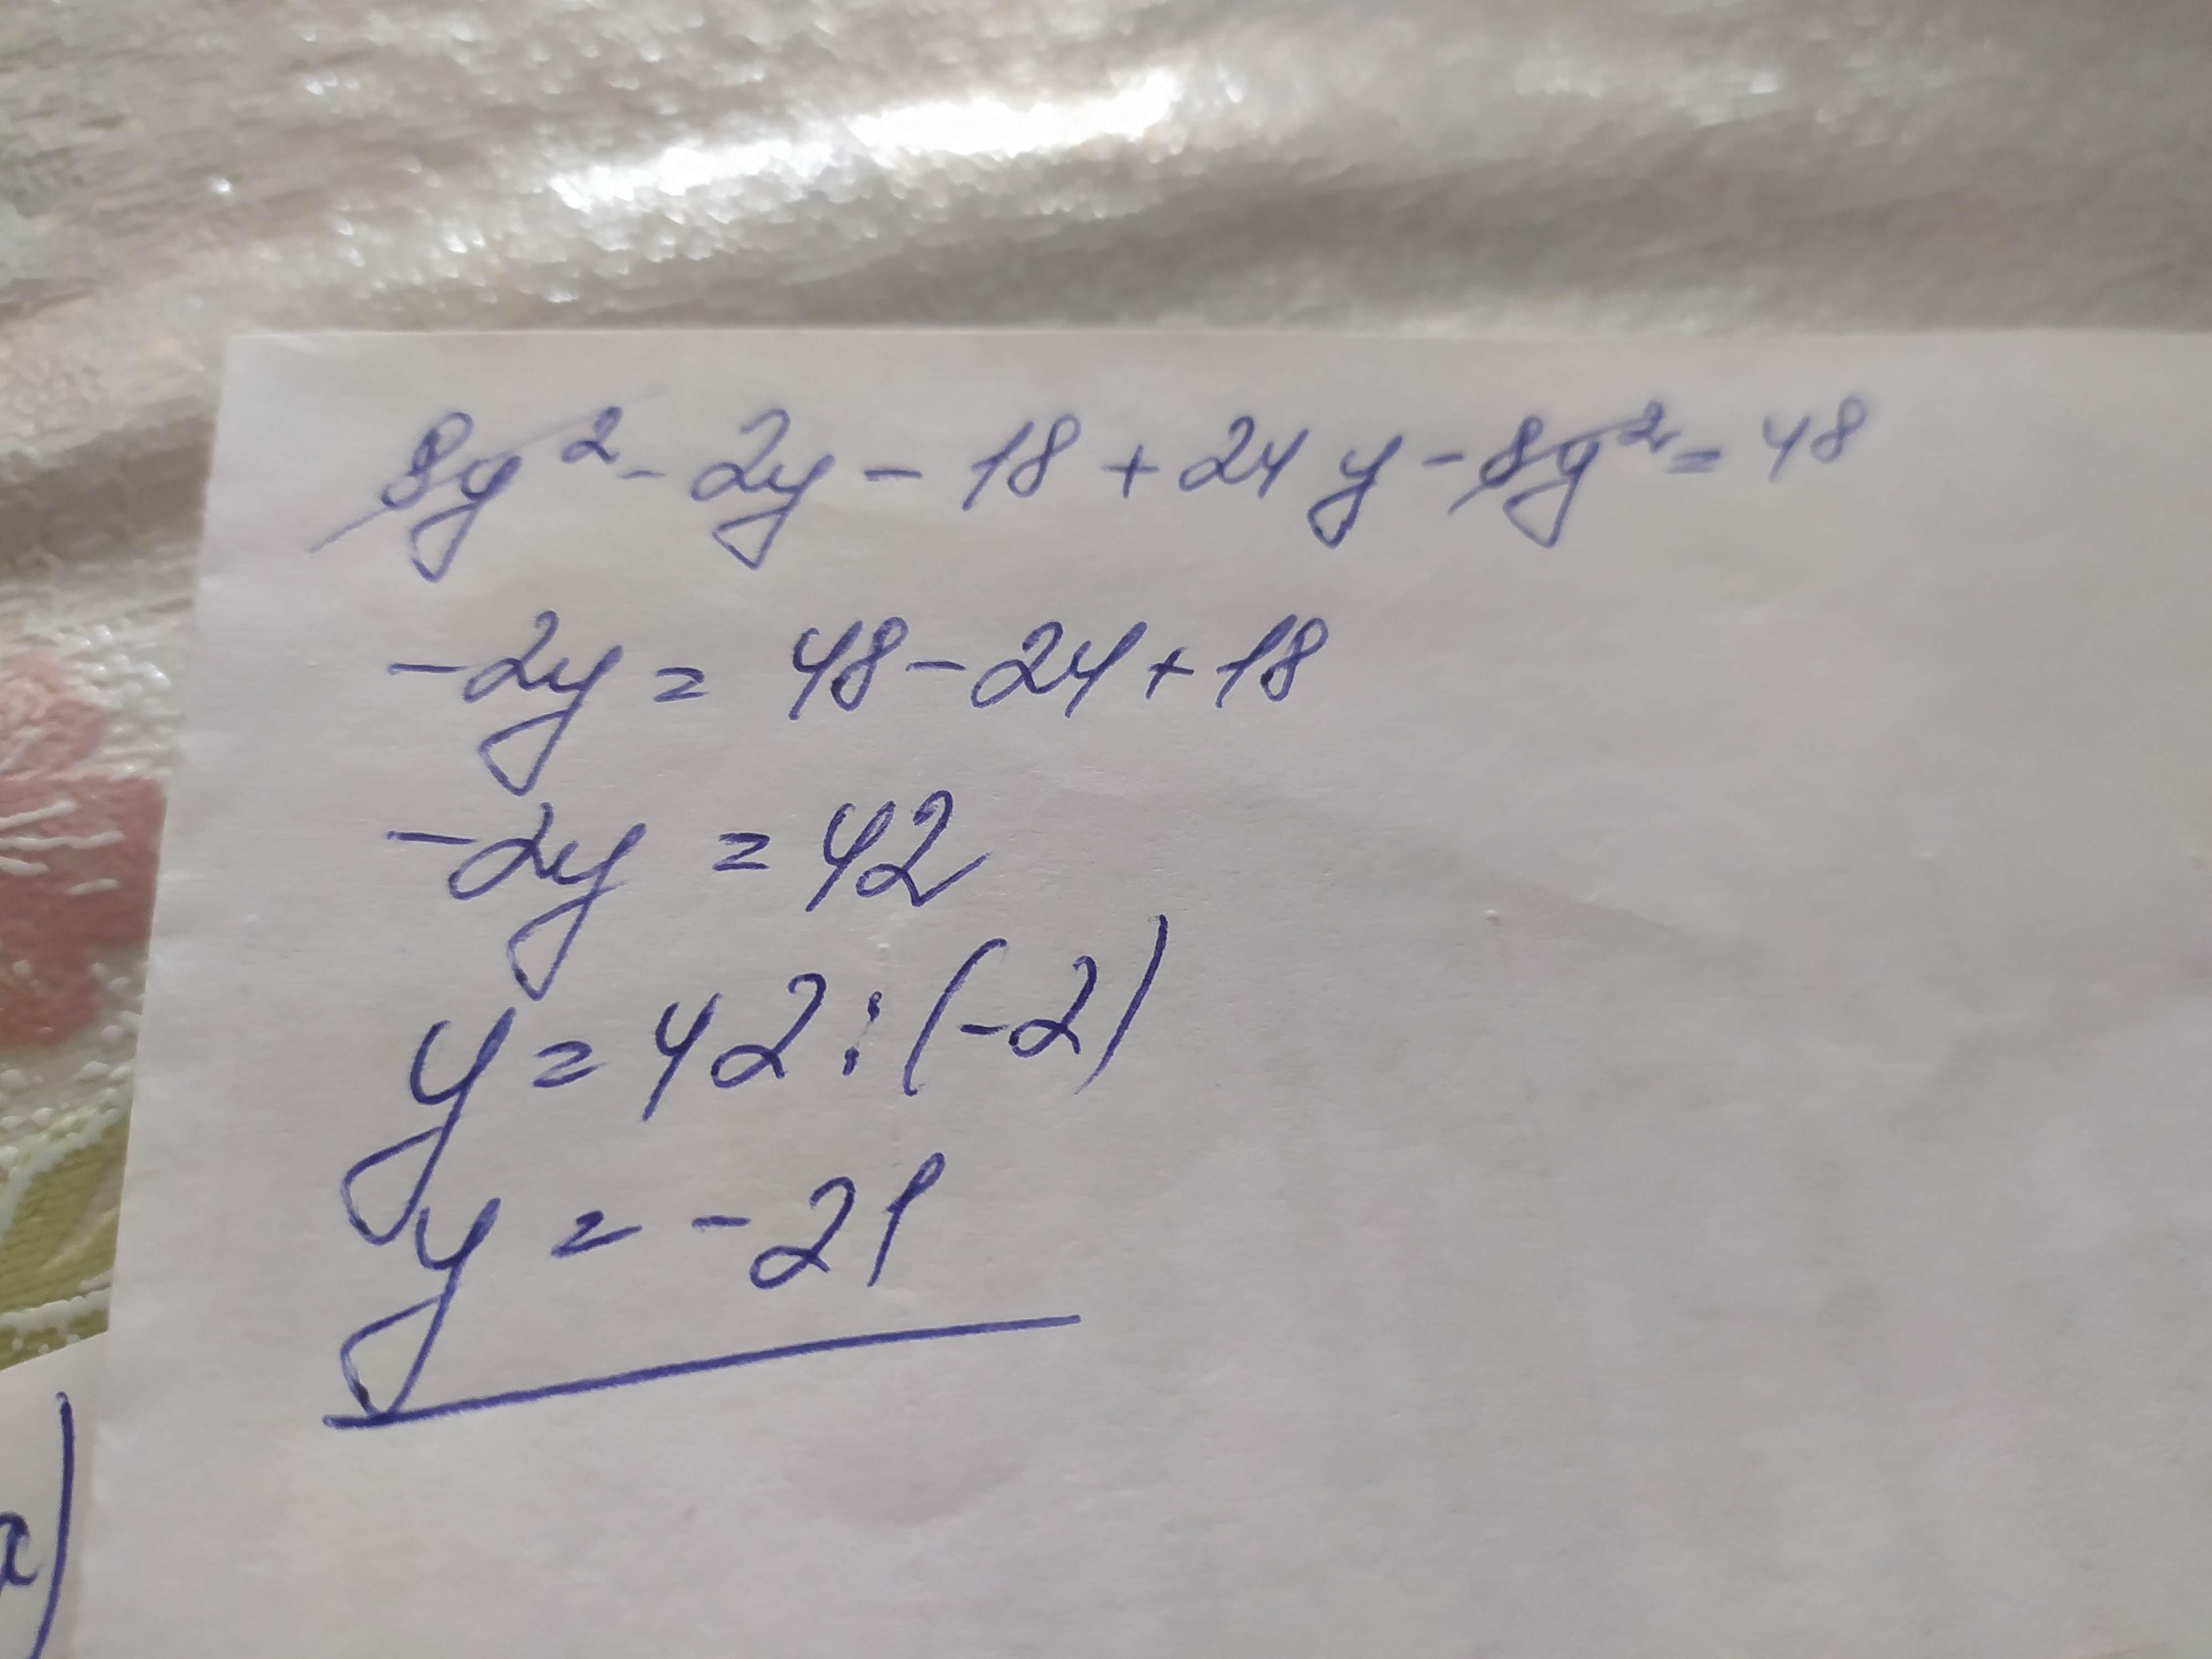 8y² - 2y - 18 + 24 y - 8y² = 48
-2y = 48 - 24 + 18
-2y = 42
y = 42 : (-2)
y = -21
x)